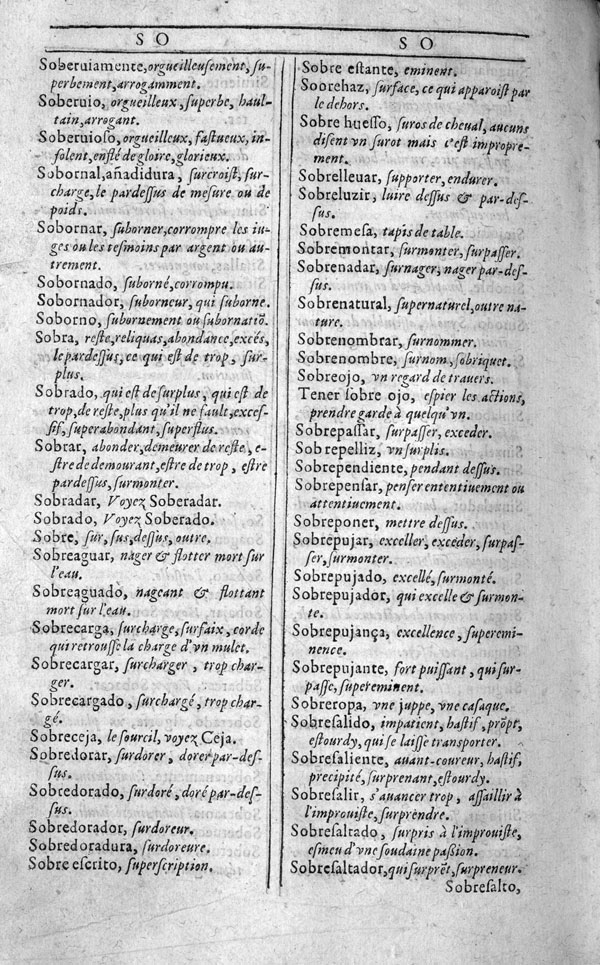 SO
Soberuiamente, orgueilleusement, su-
perbement, arrogamment.
Soberuio, orgueilleux, superbe, haul-
tain, arrogant.
Soberuioso, orgueilleux, fastueux, in-
solent, enflé de gloire, glorieux.
Sobornal, añadidura, surcroist, sur-
charge, le pardessus de mesure ou de
poids.
Sobornar, suborner, corrompre les iu-
ges ou les tesmoins par argent ou au-
trement.
Sobornado, suborné, corrompu.
Sobornador, suborneur, qui suborne.
Soborno, subornement ou subornattiõ.
Sobra, reste, reliquas, abondance, excés,
le pardessus, ce qui est de trop, sur-
plus.
Sobrado, qui est de surplus, qui est de
trop, de reste, plus qu'il ne fault, exces-
sif, superabondant, superflus.
Sobrar, abonder, demeurer de reste, e-
stre de demourant, estre de trop, estre
pardessus, surmonter.
Sobradar, Voyez Soberadar.
Sobrado, Voyez Soberado.
Sobre, sur, sus, dessus, outre.
Sobreaguar, nager & flotter mort sur
l'eau.
Sobreaguado, nageant & flottant
mort sur l'eau.
Sobrecarga, surcharge, surfaix, corde
qui retrousse la charge d'vn mulet.
Sobrecargar, surcharger, trop char-
ger.
Sobrecargado, surchargé, trop char-
gé.
Sobreceja, le sourcil, voyez Ceja.
Sobredorar, surdorer, dorer par-des-
sus.
Sobredorado, surdoré, doré par-des-
sus.
Sobredorador, surdoreur.
Sobredoradura, surdoreure.
Sobre escrito, superscription.
SO
Sobre estante, eminent.
Soorehaz, surface, ce qui apparoist par
le dehors.
Sobre huesso, suros de cheual, aucuns
disent vn surot mais c'est impropre-
ment.
Sobrelleuar, supporter, endurer.
Sobreluzir, luire dessus & par-des-
sus.
Sobremesa, tapis de table.
Sobremontar, surmonter, surpasser.
Sobrenadar, surnager, nager par-des-
sus.
Sobrenatural, supernaturel, outre na-
ture.
Sobrenombrar, surnommer.
Sobrenombre, surnom, sobriquet.
Sobreojo, vn regard de trauers.
Tener sobre ojo, espier les actions,
prendre garde à quelqu'vn.
Sobrepassar, surpasser, exceder.
Sobrepelliz, vn surplis.
Sobrependiente, pendant dessus.
Sobrepensar, penser ententiuement ou
attentiuement.
Sobreponer, mettre dessus.
Sobrepujar, exceller, exceder, surpas-
ser, surmonter.
Sobrepujado, excellé, surmonté.
Sobrepujador, qui excelle & surmon-
te.
Sobrepujança, excellence, superemi-
nence.
Sobrepujante, fort puissant, qui sur-
passe, supereminent.
Sobreropa, vne juppe, vne casaque.
Sobresalido, impatient, hastif, prõpt,
estourdy, qui se laisse transporter.
Sobresaliente, auant-coureur, hastif,
precipité, surprenant, estourdy.
Sobresalir, s'auancer trop, assaillir à
l'improuiste, surprendre.
Sobresaltado, surpris à l'improuiste,
esmeu d'vne soudaine passion.
Sobresaltador, qui surprẽt, surpreneur.
Sobresalto,